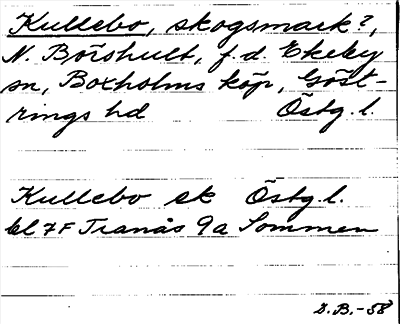 Kullebo, skogsmark?,
N. Börshult, f.d. Ekeby
sn, Boxholms köp, Göst-
rings hd Östg.l.
Kullebo ek Östg.l.
bl 7F Tranås 9a Sommen
S.B.-58